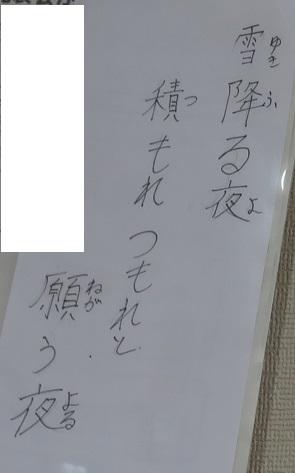 雪降る夜
積もれつもれと
願う夜